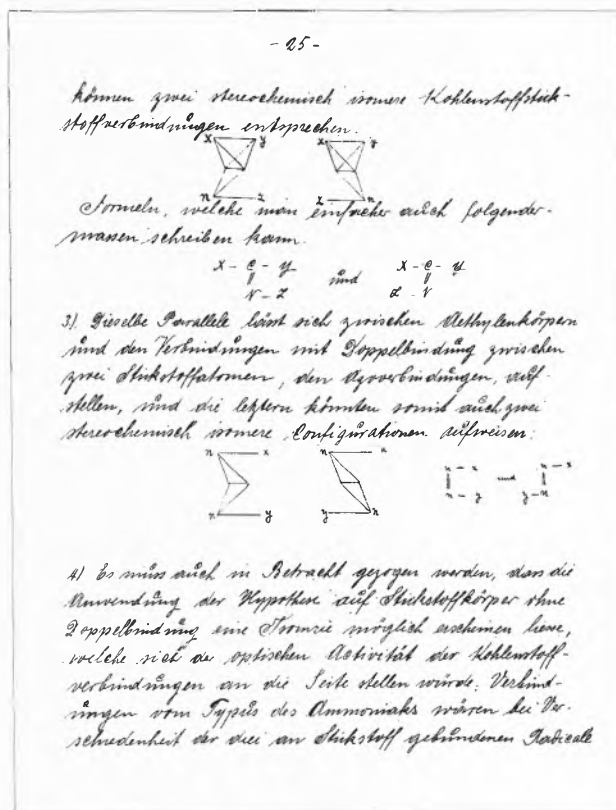 - 25 -
können zwei stereochemisch isomere Kohlenstoffstick-
stoffverbindungen entsprechen.
x y x y
n z z n
Formeln, welche man einfacher auch folgender-
massen schreiben kann.
X - C - Y und X - C - Y
|| ||
N - Z Z - N
3). Dieselbe Parallele lässt sich zwischen Aethylenkörpern
und den Verbindungen mit Doppelbindung zwischen
zwei Stickstoffatomen, den Azoverbindungen, auf-
stellen, und die letztern könnten somit auch zwei
stereochemisch isomere Configurationen aufweisen:
n x n x n - x und n - x
n y y n n - y y - n
4) Es muss auch in Betracht gezogen werden, dass die
Anwendung der Hypothese auf Stickstoffkörper ohne
Doppelbindung eine Isomrie möglich erscheinen liesse,
welche sich der optischen Activität der Kohlenstoff-
verbindungen an die Seite stellen würde; Verbind-
ungen vom Typus des Ammoniaks wären bei Ver-
schiedenheit der drei an Stickstoff gebundenen Radicale